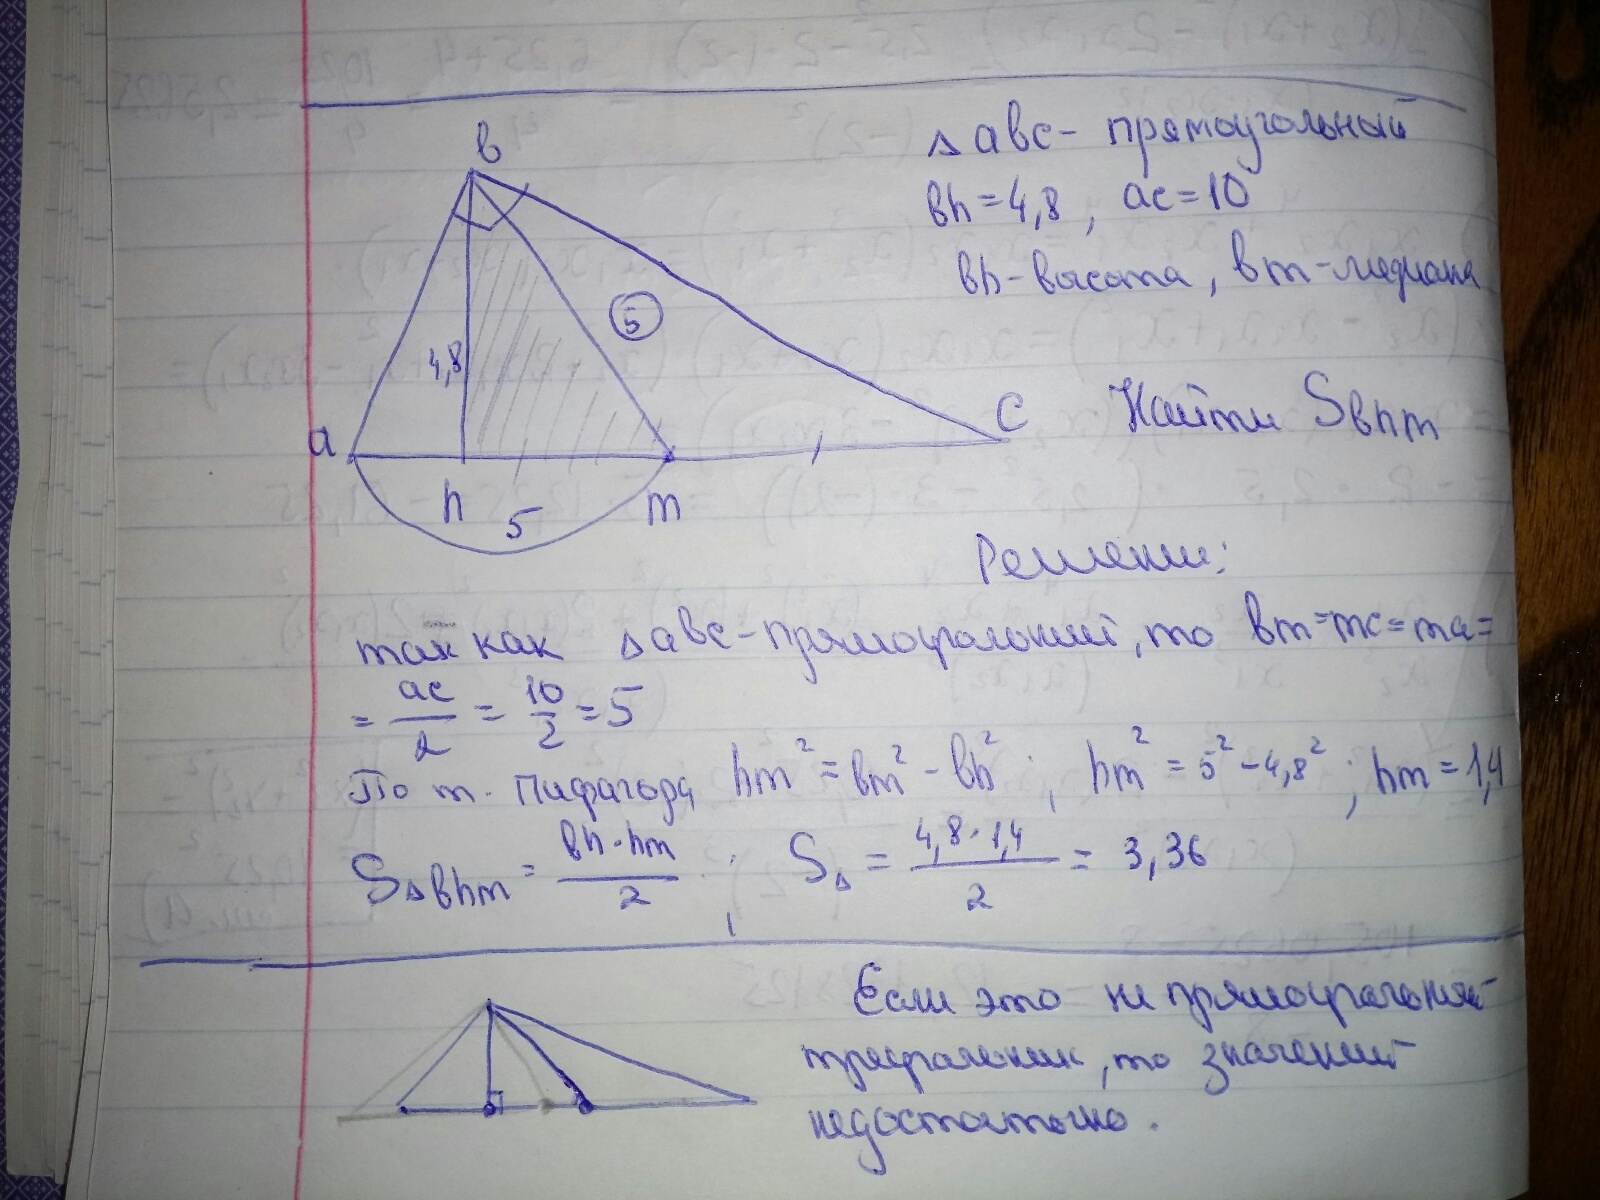 в
∆ авс - прямоугольный
вh = 4,8 , ас = 10
вh - высота , вm - медиана
5
4,8
а
h
5
m
С
Найти Sвhm
Решение:
так как ∆ авс - прямоугольный, то вm = mc = ma =
= ac/2 = 10/2 = 5
По т. Пифагора hm² = вm² - вh² ; hm² = 5² - 4,8² ; hm = 1,4
S∆вhm = вh · hm / 2 ; S∆ = 4,8 · 1,4 / 2 = 3,36
Если это не прямоугольный
треугольник, то значений
недостаточно.